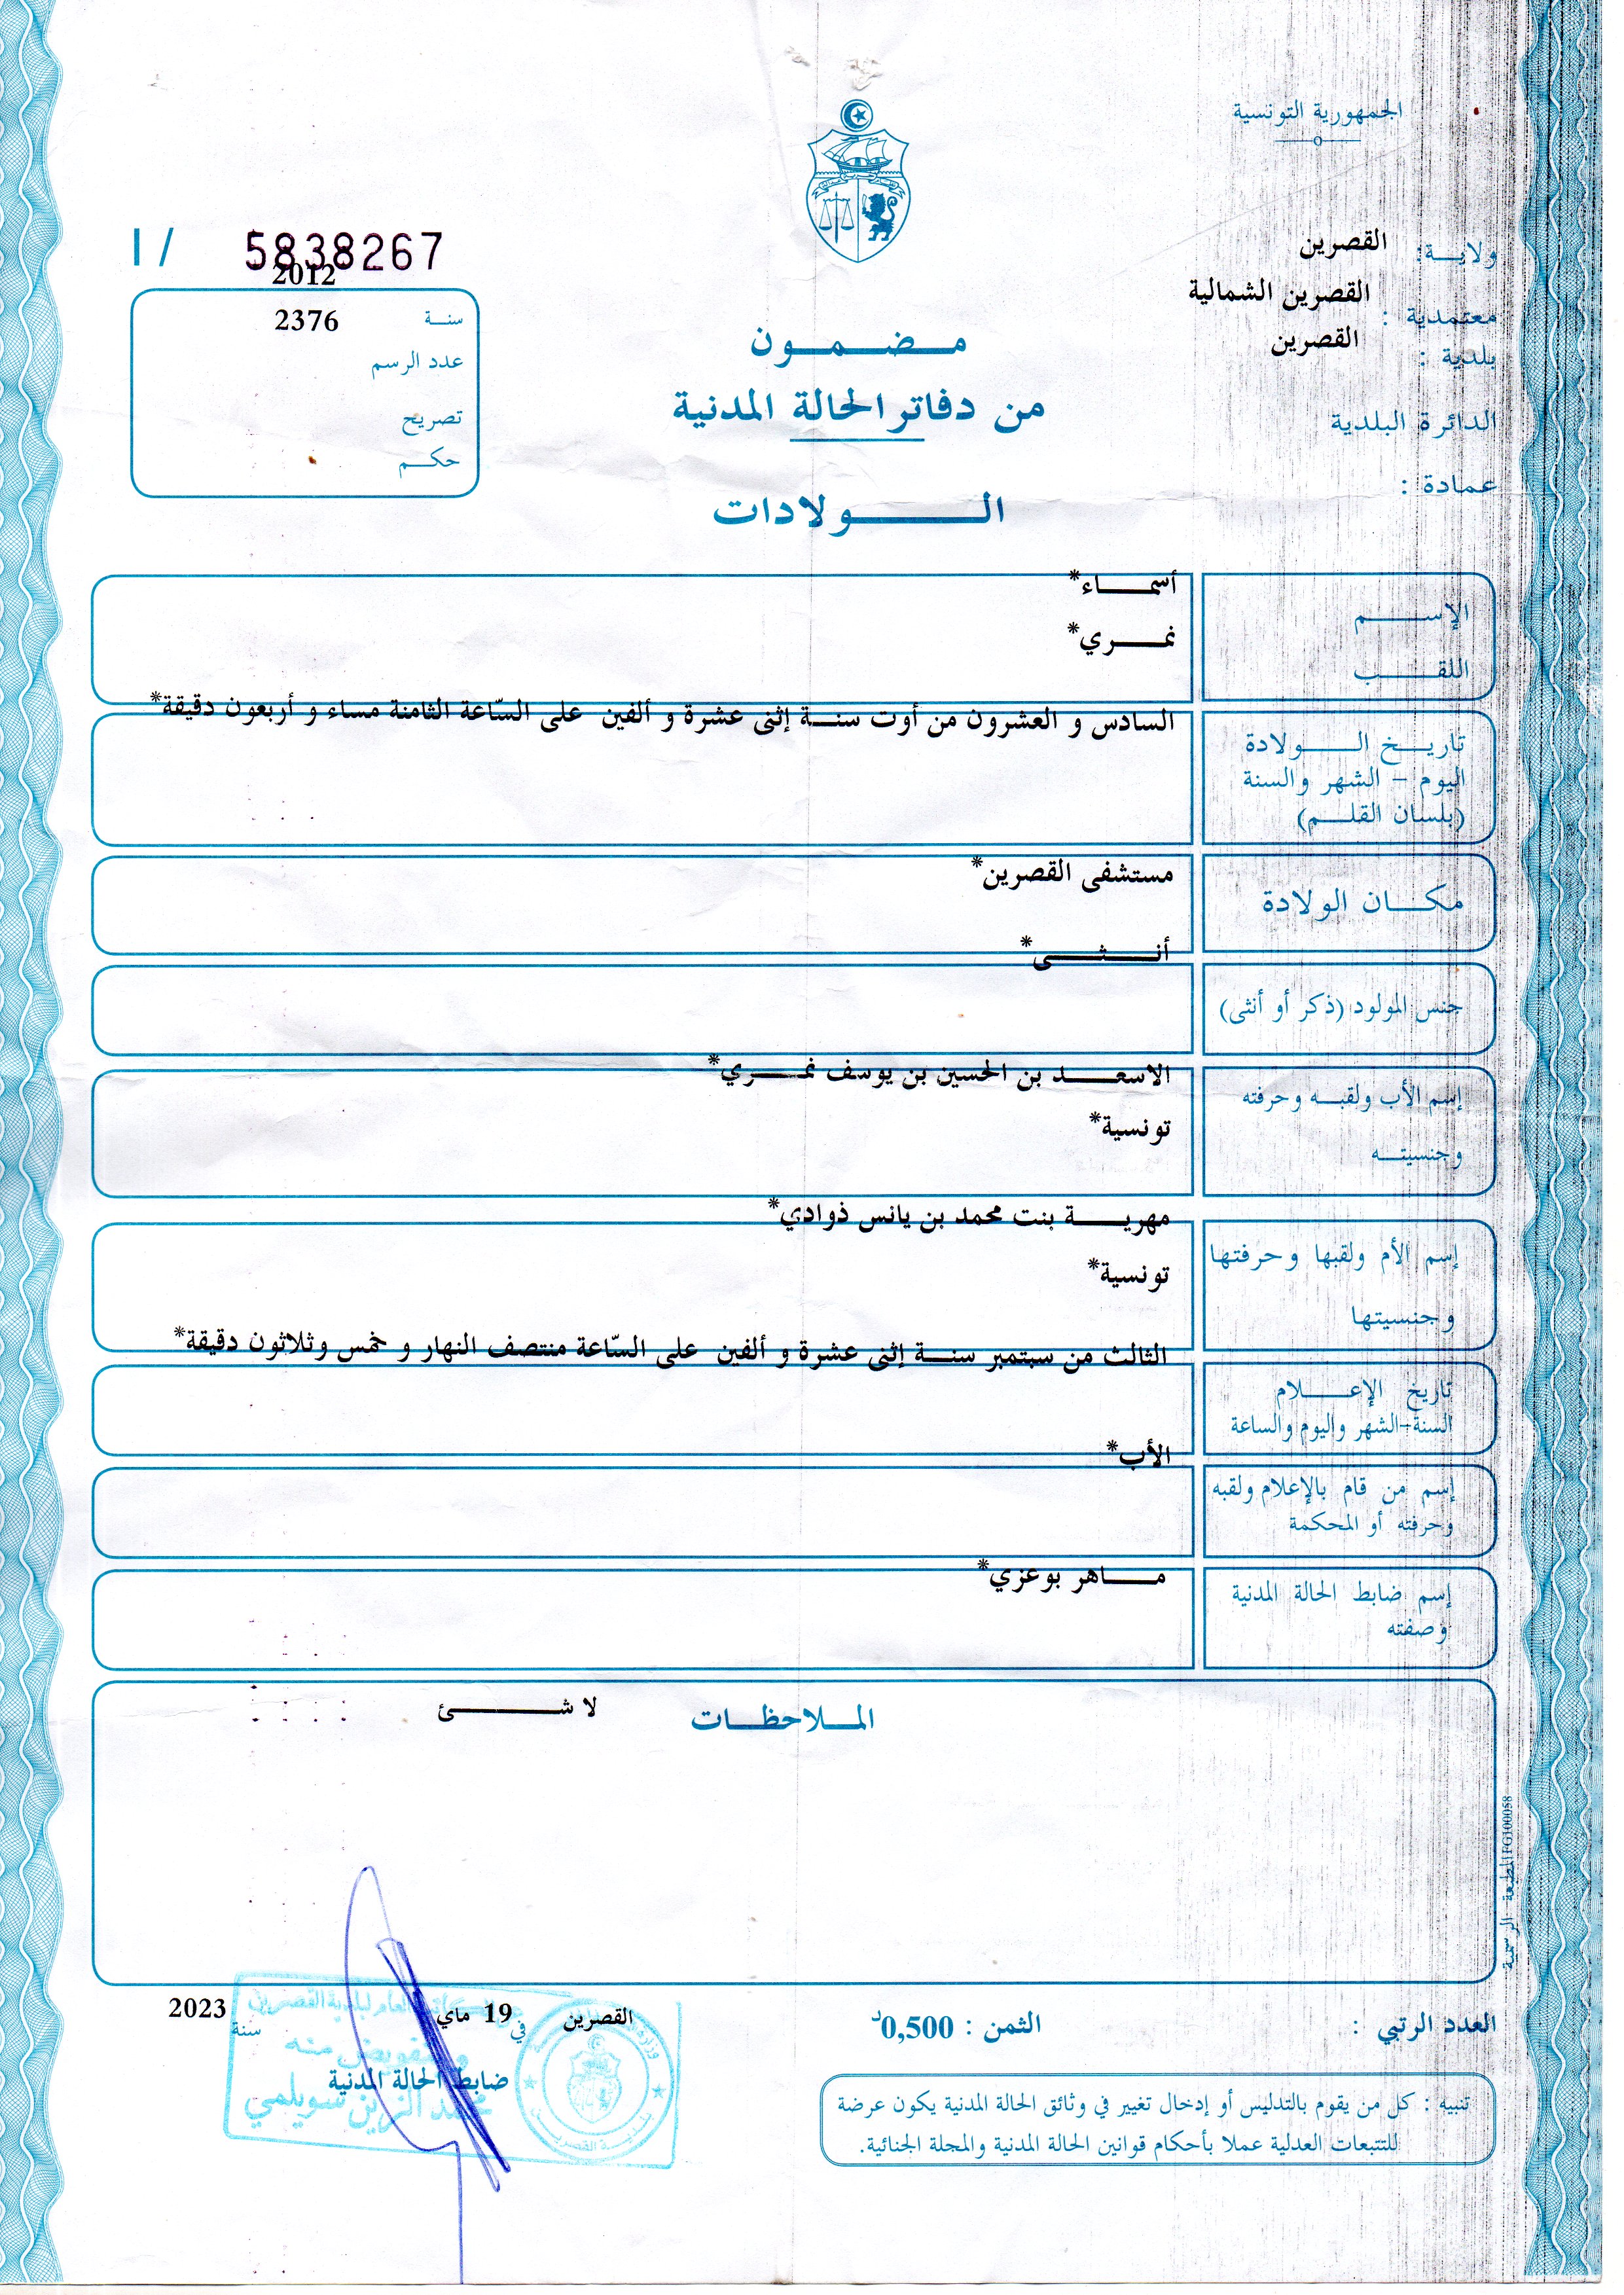 الجمهورية التونسية
ولاية: القصرين
معتمدية : القصرين الشمالية
بلدية : القصرين
الدائرة البلدية
عمادة :
I / 5838267
2012
سنة 2376
عدد الرسم
تصريح
حكم
مضمون
من دفاتر الحالة المدنية
الولادات
الإسم أسماء*
اللقب نمري*
تاريخ الولادة
اليوم - الشهر والسنة
(بلسان القلم)
السادس و العشرون من أوت سنة إثنى عشرة و ألفين على السّاعة الثامنة مساء و أربعون دقيقة*
مكان الولادة مستشفى القصرين*
جنس المولود (ذكر أو أنثى) أنثى*
إسم الأب ولقبه وحرفته الاسعد بن الحسين بن يوسف نمري*
وجنسيته تونسية*
إسم الأم ولقبها وحرفتها مهرية بنت محمد بن يانس ذوادي*
وجنسيتها تونسية*
تاريخ الإعلام
السنة-الشهر واليوم والساعة
الثالث من سبتمبر سنة إثنى عشرة و ألفين على السّاعة منتصف النهار و خمس وثلاثون دقيقة*
إسم من قام بالإعلام ولقبه
وحرفته أو المحكمة
الأب*
إسم ضابط الحالة المدنية
وصفته
ماهر بوعزي*
الملاحظات لا شئ
المطبعة الرسمية FG100058
العدد الرتبي :
الثمن : 0,500د
القصرين في 19 ماي سنة 2023
ضابط الحالة المدنية
تنبيه : كل من يقوم بالتدليس أو إدخال تغيير في وثائق الحالة المدنية يكون عرضة
للتتبعات العدلية عملا بأحكام قوانين الحالة المدنية والمجلة الجنائية.